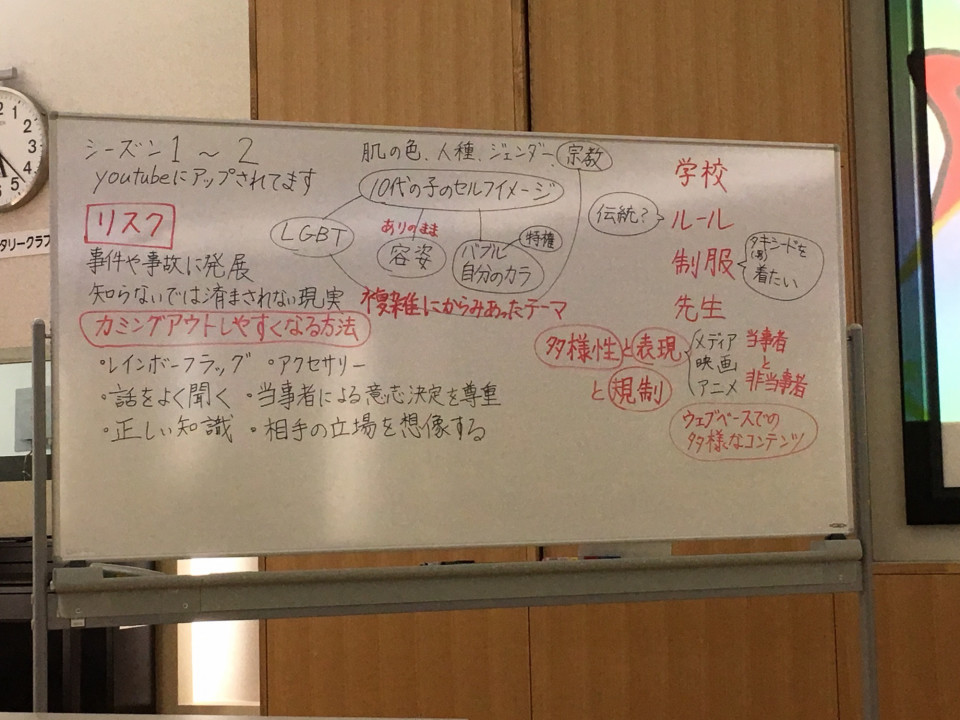 シーズン1～2
youtubeにアップされてます
リスク
事件や事故に発展
知らないでは済まされない現実
カミングアウトしやすくなる方法
・レインボーフラッグ ・アクセサリー
・話をよく聞く ・当事者による意志決定を尊重
・正しい知識 ・相手の立場を想像する
肌の色、人種、ジェンダー、宗教
10代の子のセルフイメージ
LGBT
ありのまま
容姿
特権
バブル
自分のカラ
複雑にからみあったテーマ
学校
伝統?
ルール
制服
タキシードを
(男)
着たい
先生
多様性と表現
と規制
メディア
映画
アニメ
当事者
と
非当事者
ウェブベースでの
多様なコンテンツ
タリークラブ
1
2
3
4
5